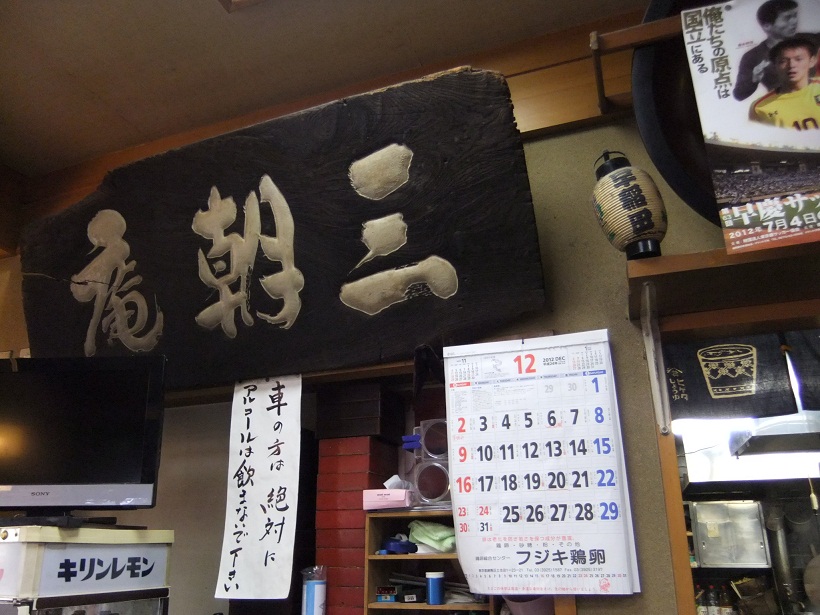 三朝庵
車の方は絶対に
アルコールは飲まないで下さい
俺たちの原点は
国立にある
10
早慶サ
2012年7月4
早稲田
12
2012 DEC
29 30 1
2 3 4 5 6 7 8
9 10 11 12 13 14 15
16 17 18 19 20 21 22
23 24 25 26 27 28 29
30 31
フジキ鶏卵
SONY
キリンレモン